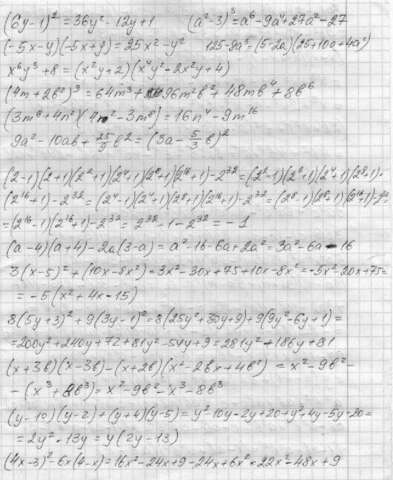 (6y-1)² = 36y² - 12y + 1    (a²-3)³ = a⁶ - 9a⁴ + 27a² - 27
(-5x-y)(-5x+y) = 25x² - y²    125-8a³ = (5-2a)(25+10a+4a²)
x⁶y³ + 8 = (x²y+2)(x⁴y² - 2x²y + 4)
(4m+2b²)³ = 64m³ + 96m²b² + 48mb⁴ + 8b⁶
(3m⁸+4n²)(4n²-3m⁸) = 16n⁴ - 9m¹⁶
9a² - 10ab + 25/9 b² = (3a - 5/3 b)²
(2-1)(2+1)(2²+1)(2⁴+1)(2⁸+1)(2¹⁶+1) - 2³² = (2²-1)(2²+1)(2⁴+1)(2⁸+1)·
(2¹⁶+1) - 2³² = (2⁴-1)(2⁴+1)(2⁸+1)(2¹⁶+1) - 2³² = (2⁸-1)(2⁸+1)(2¹⁶+1) -
= (2¹⁶-1)(2¹⁶+1) - 2³² = 2³² - 1 - 2³² = -1
(a-4)(a+4) - 2a(3-a) = a² - 16 - 6a + 2a² = 3a² - 6a - 16
3(x-5)² + (10x-8x²) = 3x² - 30x + 75 + 10x - 8x² = -5x² - 20x + 75 =
= -5(x² + 4x - 15)
8(5y+3)² + 9(3y-1)² = 8(25y²+30y+9) + 9(9y²-6y+1) =
= 200y² + 240y + 72 + 81y² - 54y + 9 = 281y² + 186y + 81
(x+3b)(x-3b) - (x+2b)(x²-2bx+4b²) = x² - 9b² -
- (x³ + 8b³) = x² - 9b² - x³ - 8b³
(y-10)(y-2) + (y+4)(y-5) = y² - 10y - 2y + 20 + y² + 4y - 5y - 20 =
= 2y² - 13y = y(2y-13)
(4x-3)² - 6x(4-x) = 16x² - 24x + 9 - 24x + 6x² = 22x² - 48x + 9